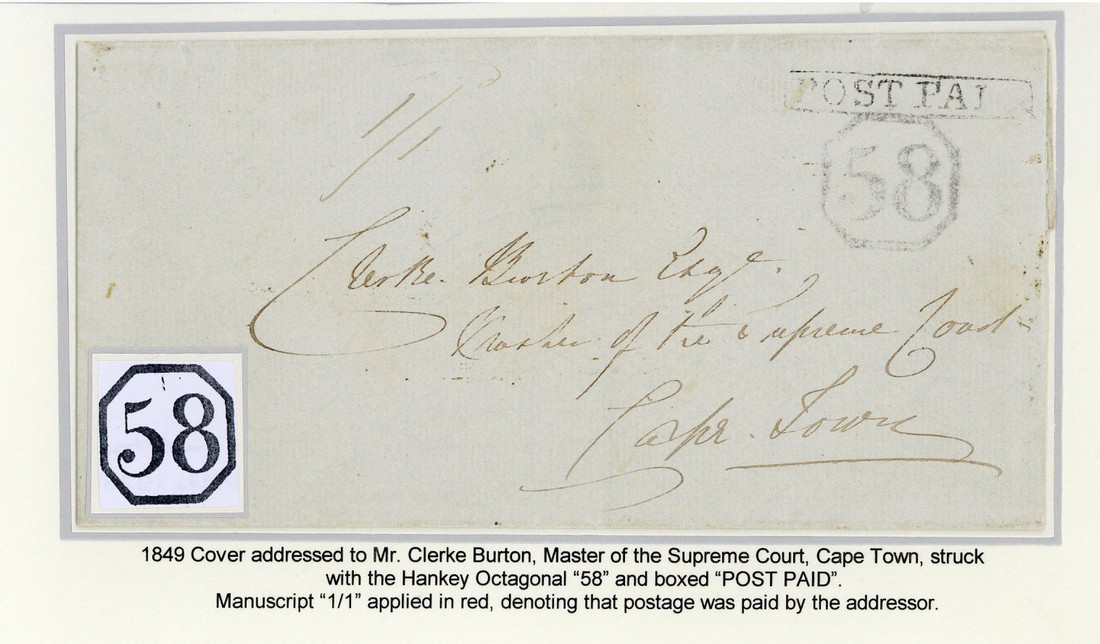 1/1
POST PAI
58
Clerke Burton Esqre.
Master of the Supreme Court
Cape Town
58
1849 Cover addressed to Mr. Clerke Burton, Master of the Supreme Court, Cape Town, struck
with the Hankey Octagonal “58” and boxed “POST PAID”.
Manuscript “1/1” applied in red, denoting that postage was paid by the addressor.